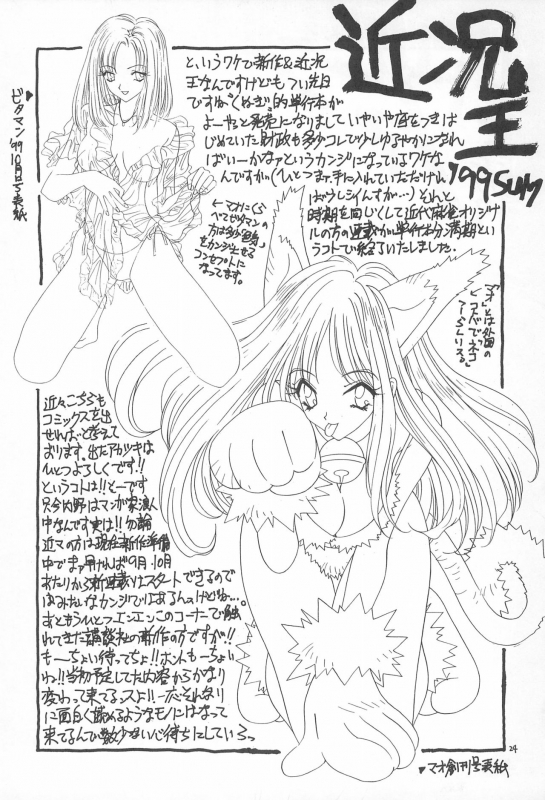 近況王
'99 SUM
と、いうワケで新作&近況
王なんですけどもつい先日
ですね「くぬぎ」的単行本が
よーやっと発売になりましていやいや底をつきは
じめていた財政も多少コレで少しゆるやかになれ
ばいーかなァというカンジになっているワケな
んですが。(ひとつまァ、手に入れていただけれ
ばうれしイんすが…)それと
時期を同じくして近代麻雀オリジナ
ルの方の連載が単行本分満期とい
うコトで終了いたしました。
ビタマン'99 10月号表紙
べつマン
の
方は多少色気
をカンジさせる
コンセプトに
なってます。
「マオ」とは外国の
コトバで「ネコ」
近々こちらも
コミックスを出
せればと考えて
おります。出たアカツキは
ひとつよろしくです!!
というコトは!!とーです
只今内野はマンガ家浪人
中なんです実は!!勿論
近マの方は現在新作準備
中でまァ早ければ9月・10月
あたりから新連載はスタートできるので
はみたいなカンジではあるんスけどね…。
あともうひとつエンエンこのコーナーで触
れてきた講談社の新作の方ですが!!
も〜ちょい待ってちょ!!ホントも〜ちょい
わ!!当初予定してた内容からかなり
変わって来てるっスよ!!一応それなり
に面白く読めるようなモノにはなって
来てるんで多少心待ちにしている。
マオ創刊号表紙
24